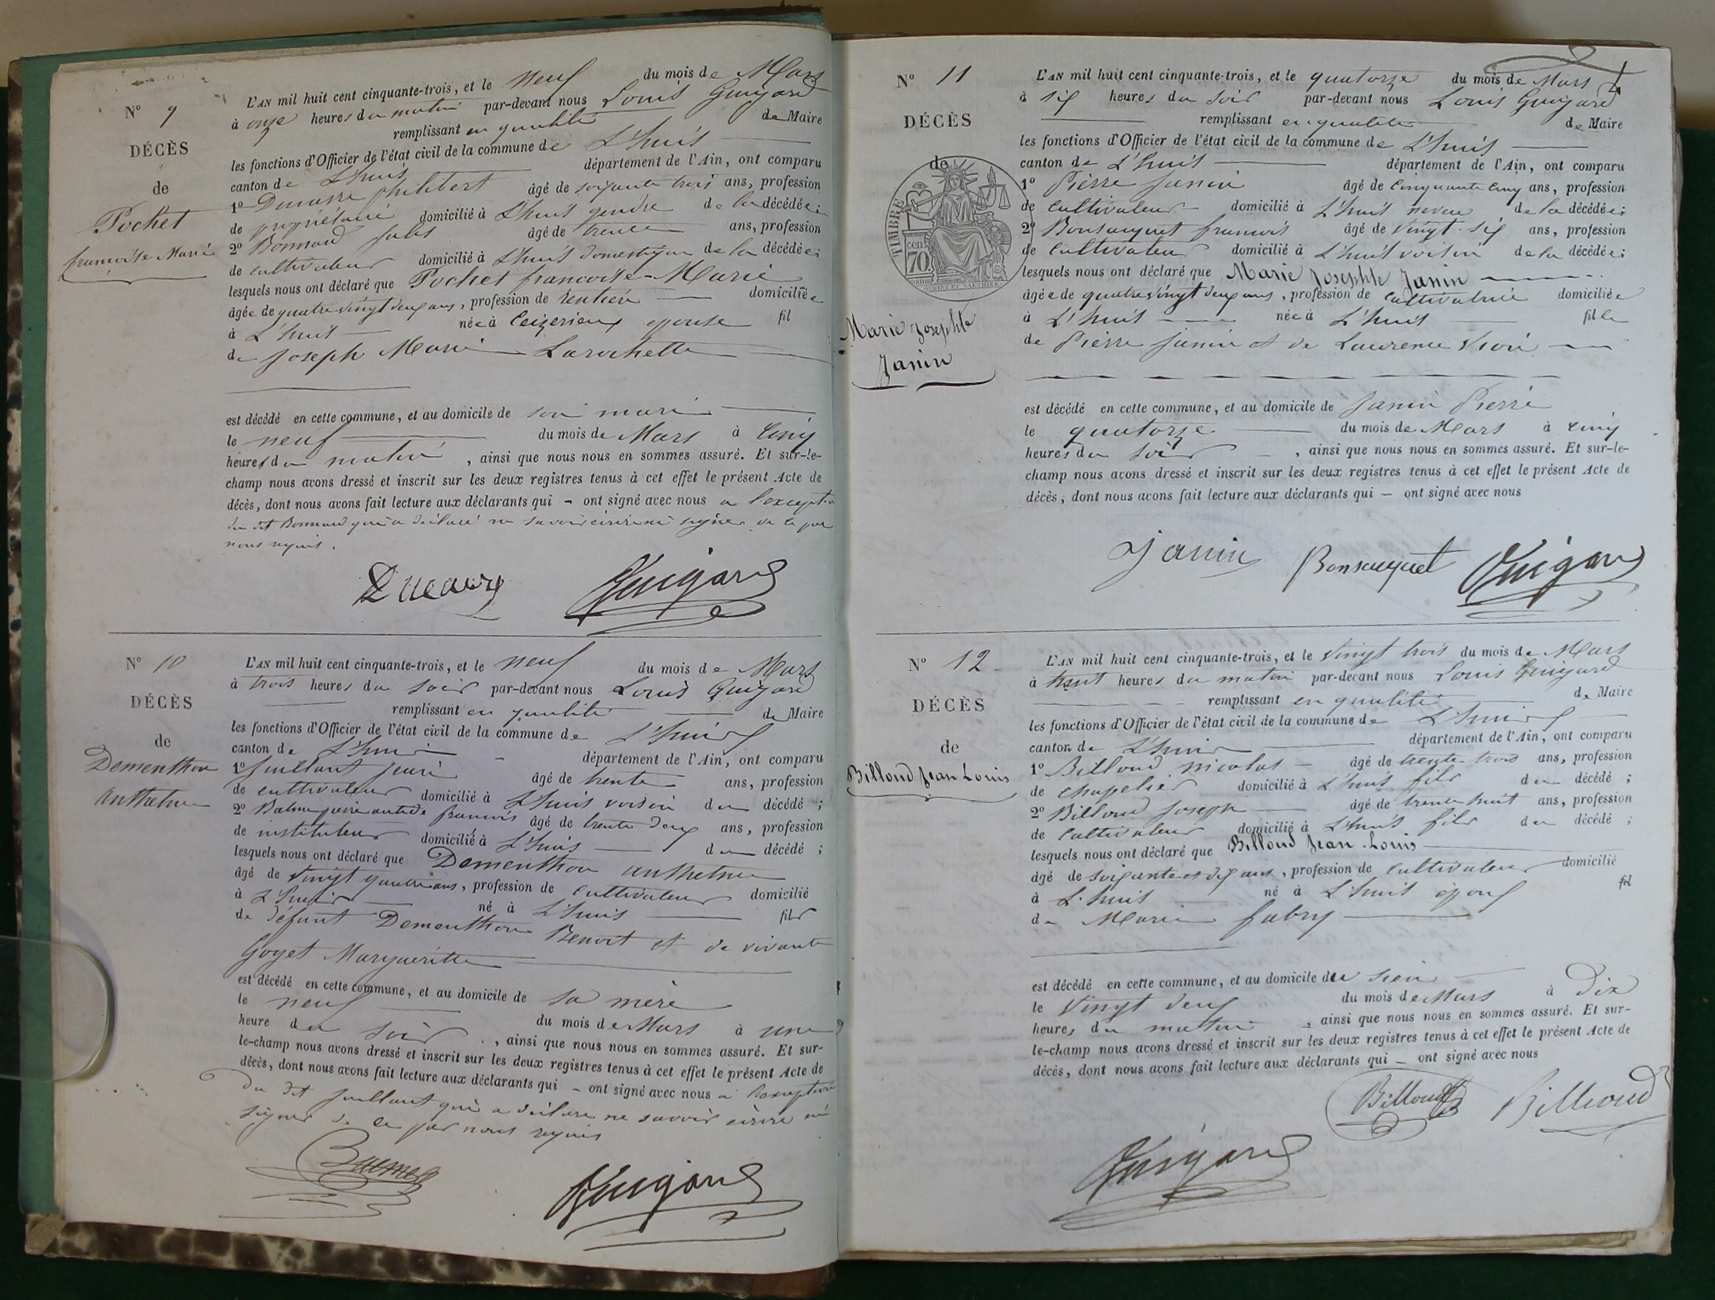 N° 9
DÉCÈS
de
Pochet
françoise Marie
L'AN mil huit cent cinquante-trois, et le neuf du mois de Mars
à onze heures du matin par-devant nous Louis Guigard
remplissant en qualité de Maire
les fonctions d'Officier de l'état civil de la commune de L'huis
canton de L'huis département de l'Ain, ont comparu
1° Philibert âgé de soixante trois ans, profession
de propriétaire domicilié à L'huis gendre de la décédée;
2° Bonnard Jules âgé de trente ans, profession
de cultivateur domicilié à L'huis domestique de la décédée;
lesquels nous ont déclaré que Pochet françoise-Marie
âgée de quatre vingt deux ans, profession de rentière domiciliée
à L'huis née à Ceizerieux épouse fil
de Joseph Marie Larochette
est décédé en cette commune, et au domicile de son mari
le neuf du mois de Mars à cinq
heures du matin, ainsi que nous nous en sommes assuré. Et sur-le-
champ nous avons dressé et inscrit sur les deux registres tenus à cet effet le présent Acte de
décès, dont nous avons fait lecture aux déclarants qui – ont signé avec nous a l'exception
du dit Bonnard qui a déclaré ne savoir écrire ni signer de ce par
nous requis.
Guigard
N° 10
DÉCÈS
de
Dementhon
Anthelme
L'AN mil huit cent cinquante-trois, et le neuf du mois de Mars
à trois heures du soir par-devant nous Louis Guigard
remplissant en qualité de Maire
les fonctions d'Officier de l'état civil de la commune de L'huis
canton de L'huis département de l'Ain, ont comparu
1° âgé de trente ans, profession
de cultivateur domicilié à L'huis voisin du décédé;
2° françois âgé de trente deux ans, profession
de instituteur domicilié à L'huis du décédé;
lesquels nous ont déclaré que Dementhon anthelme
âgé de vingt quatre ans, profession de cultivateur domicilié
à L'huis né à L'huis fils
de défunt Dementhon Benoit et de vivante
Goyet Marguerite
est décédé en cette commune, et au domicile de sa mère
le neuf du mois de Mars à une
heure du soir, ainsi que nous nous en sommes assuré. Et sur-
le-champ nous avons dressé et inscrit sur les deux registres tenus à cet effet le présent Acte de
décès, dont nous avons fait lecture aux déclarants qui – ont signé avec nous a l'exception
Du dit qui a déclaré ne savoir écrire ni
signer de ce par nous requis
Guigard
N° 11
DÉCÈS
de
TIMBRE
70
Marie Josephte
Janin
L'AN mil huit cent cinquante-trois, et le quatorze du mois de Mars
à six heures du soir par-devant nous Louis Guigard
remplissant en qualité de Maire
les fonctions d'Officier de l'état civil de la commune de L'huis
canton de L'huis département de l'Ain, ont comparu
1° Pierre Janin âgé de cinquante cinq ans, profession
de cultivateur domicilié à L'huis neveu de la décédée;
2° Bonsacquet francois âgé de vingt-six ans, profession
de cultivateur domicilié à L'huis voisin de la décédée;
lesquels nous ont déclaré que Marie Josephte Janin
âgée de quatre vingt deux ans, profession de cultivatrice domiciliée
à L'huis née à L'huis fille
de Pierre Janin et de Laurence
est décédé en cette commune, et au domicile de Janin Pierre
le quatorze du mois de Mars à cinq
heures du soir, ainsi que nous nous en sommes assuré. Et sur-le-
champ nous avons dressé et inscrit sur les deux registres tenus à cet effet le présent Acte de
décès, dont nous avons fait lecture aux déclarants qui – ont signé avec nous
Janin Bonsacquet Guigard
N° 12
DÉCÈS
de
Billoud Jean Louis
L'AN mil huit cent cinquante-trois, et le vingt trois du mois de Mars
à huit heures du matin par-devant nous Louis Guigard
remplissant en qualité de Maire
les fonctions d'Officier de l'état civil de la commune de L'huis
canton de L'huis département de l'Ain, ont comparu
1° Billoud nicolas âgé de trente trois ans, profession
de chapelier domicilié à L'huis fils du décédé;
2° Billoud Joseph âgé de trente huit ans, profession
de cultivateur domicilié à L'huis fils du décédé;
lesquels nous ont déclaré que Billoud Jean-Louis
âgé de soixante et dix ans, profession de cultivateur domicilié
à L'huis né à L'huis époux fil
de Marie fabry
est décédé en cette commune, et au domicile du sien
le vingt deux du mois de Mars à dix
heures du matin, ainsi que nous nous en sommes assuré. Et sur-
le-champ nous avons dressé et inscrit sur les deux registres tenus à cet effet le présent Acte de
décès, dont nous avons fait lecture aux déclarants qui – ont signé avec nous
Billoud Billioud
Guigard